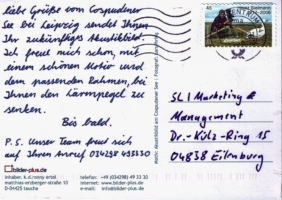 liebe Grüße vom Cospudener
See bei Leipzig sendet Ihnen
Ihr zukünftiges Akustikbild.
Ich freue mich schon, mit
einem schönen Motiv und
dem passenden Rahmen, bei
Ihnen den Lärmpegel zu
senken.
Bis bald.
P.S. Unser Team freut sich
auf Ihren Anruf 034298 493330
bilder-plus.de
inhaber. k.d.ronny ertel
matthias-erzberger-straße 10
D-04425 taucha
telefon: +49 (034298) 49 33 30
email: info@bilder-plus.de
internet: www.bilder-plus.de
Motiv: Akustikbild am Cospudener See | Fotograf:
45
SLI Marketing &
Management
Dr.-Külz-Ring 15
04838 Eilenburg